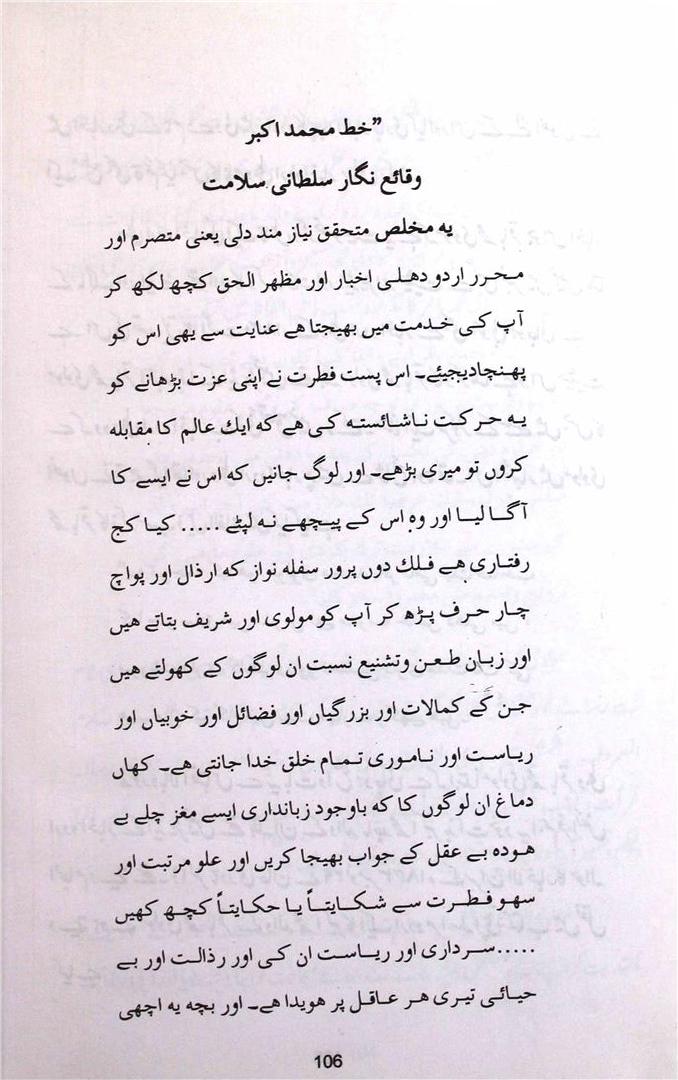 ”خط محمد اکبر
وقائع نگار سلطانی سلامت
یه مخلص متحقق نیاز مند دلی یعنی متصرم اور
محرر اردو دهلی اخبار اور مظهر الحق کچھ لکھ کر
آپ کی خدمت میں بھیجتا هے عنایت سے یهی اس کو
پهنچادیجیئے۔ اس پست فطرت نے اپنی عزت بڑھانے کو
یه حرکت ناشائسته کی هے که ایك عالم کا مقابله
کروں تو میری بڑھے۔ اور لوگ جانیں که اس نے ایسے کا
آگا لیا اور وہ اس کے پیچھے نه لپٹے ..... کیا کج
رفتاری هے فلك دوں پرور سفله نواز که ارذال اور پواچ
چار حرف پڑھ کر آپ کو مولوی اور شریف بتاتے هیں
اور زبان طعن وتشنیع نسبت ان لوگوں کے کھولتے هیں
جن کے کمالات اور بزرگیاں اور فضائل اور خوبیاں اور
ریاست اور ناموری تمام خلق خدا جانتی هے۔ کهاں
دماغ ان لوگوں کا که باوجود زباندانی ایسے مغز چلے بے
هوده بے عقل کے جواب بھیجا کریں اور علو مرتبت اور
سهو فطرت سے شکایتاً یا حکایتاً کچھ کهیں
.....سرداری اور ریاست ان کی اور رذالت اور بے
حیائی تیری هر عاقل پر هویدا هے۔ اور بچه یه اچھی
106